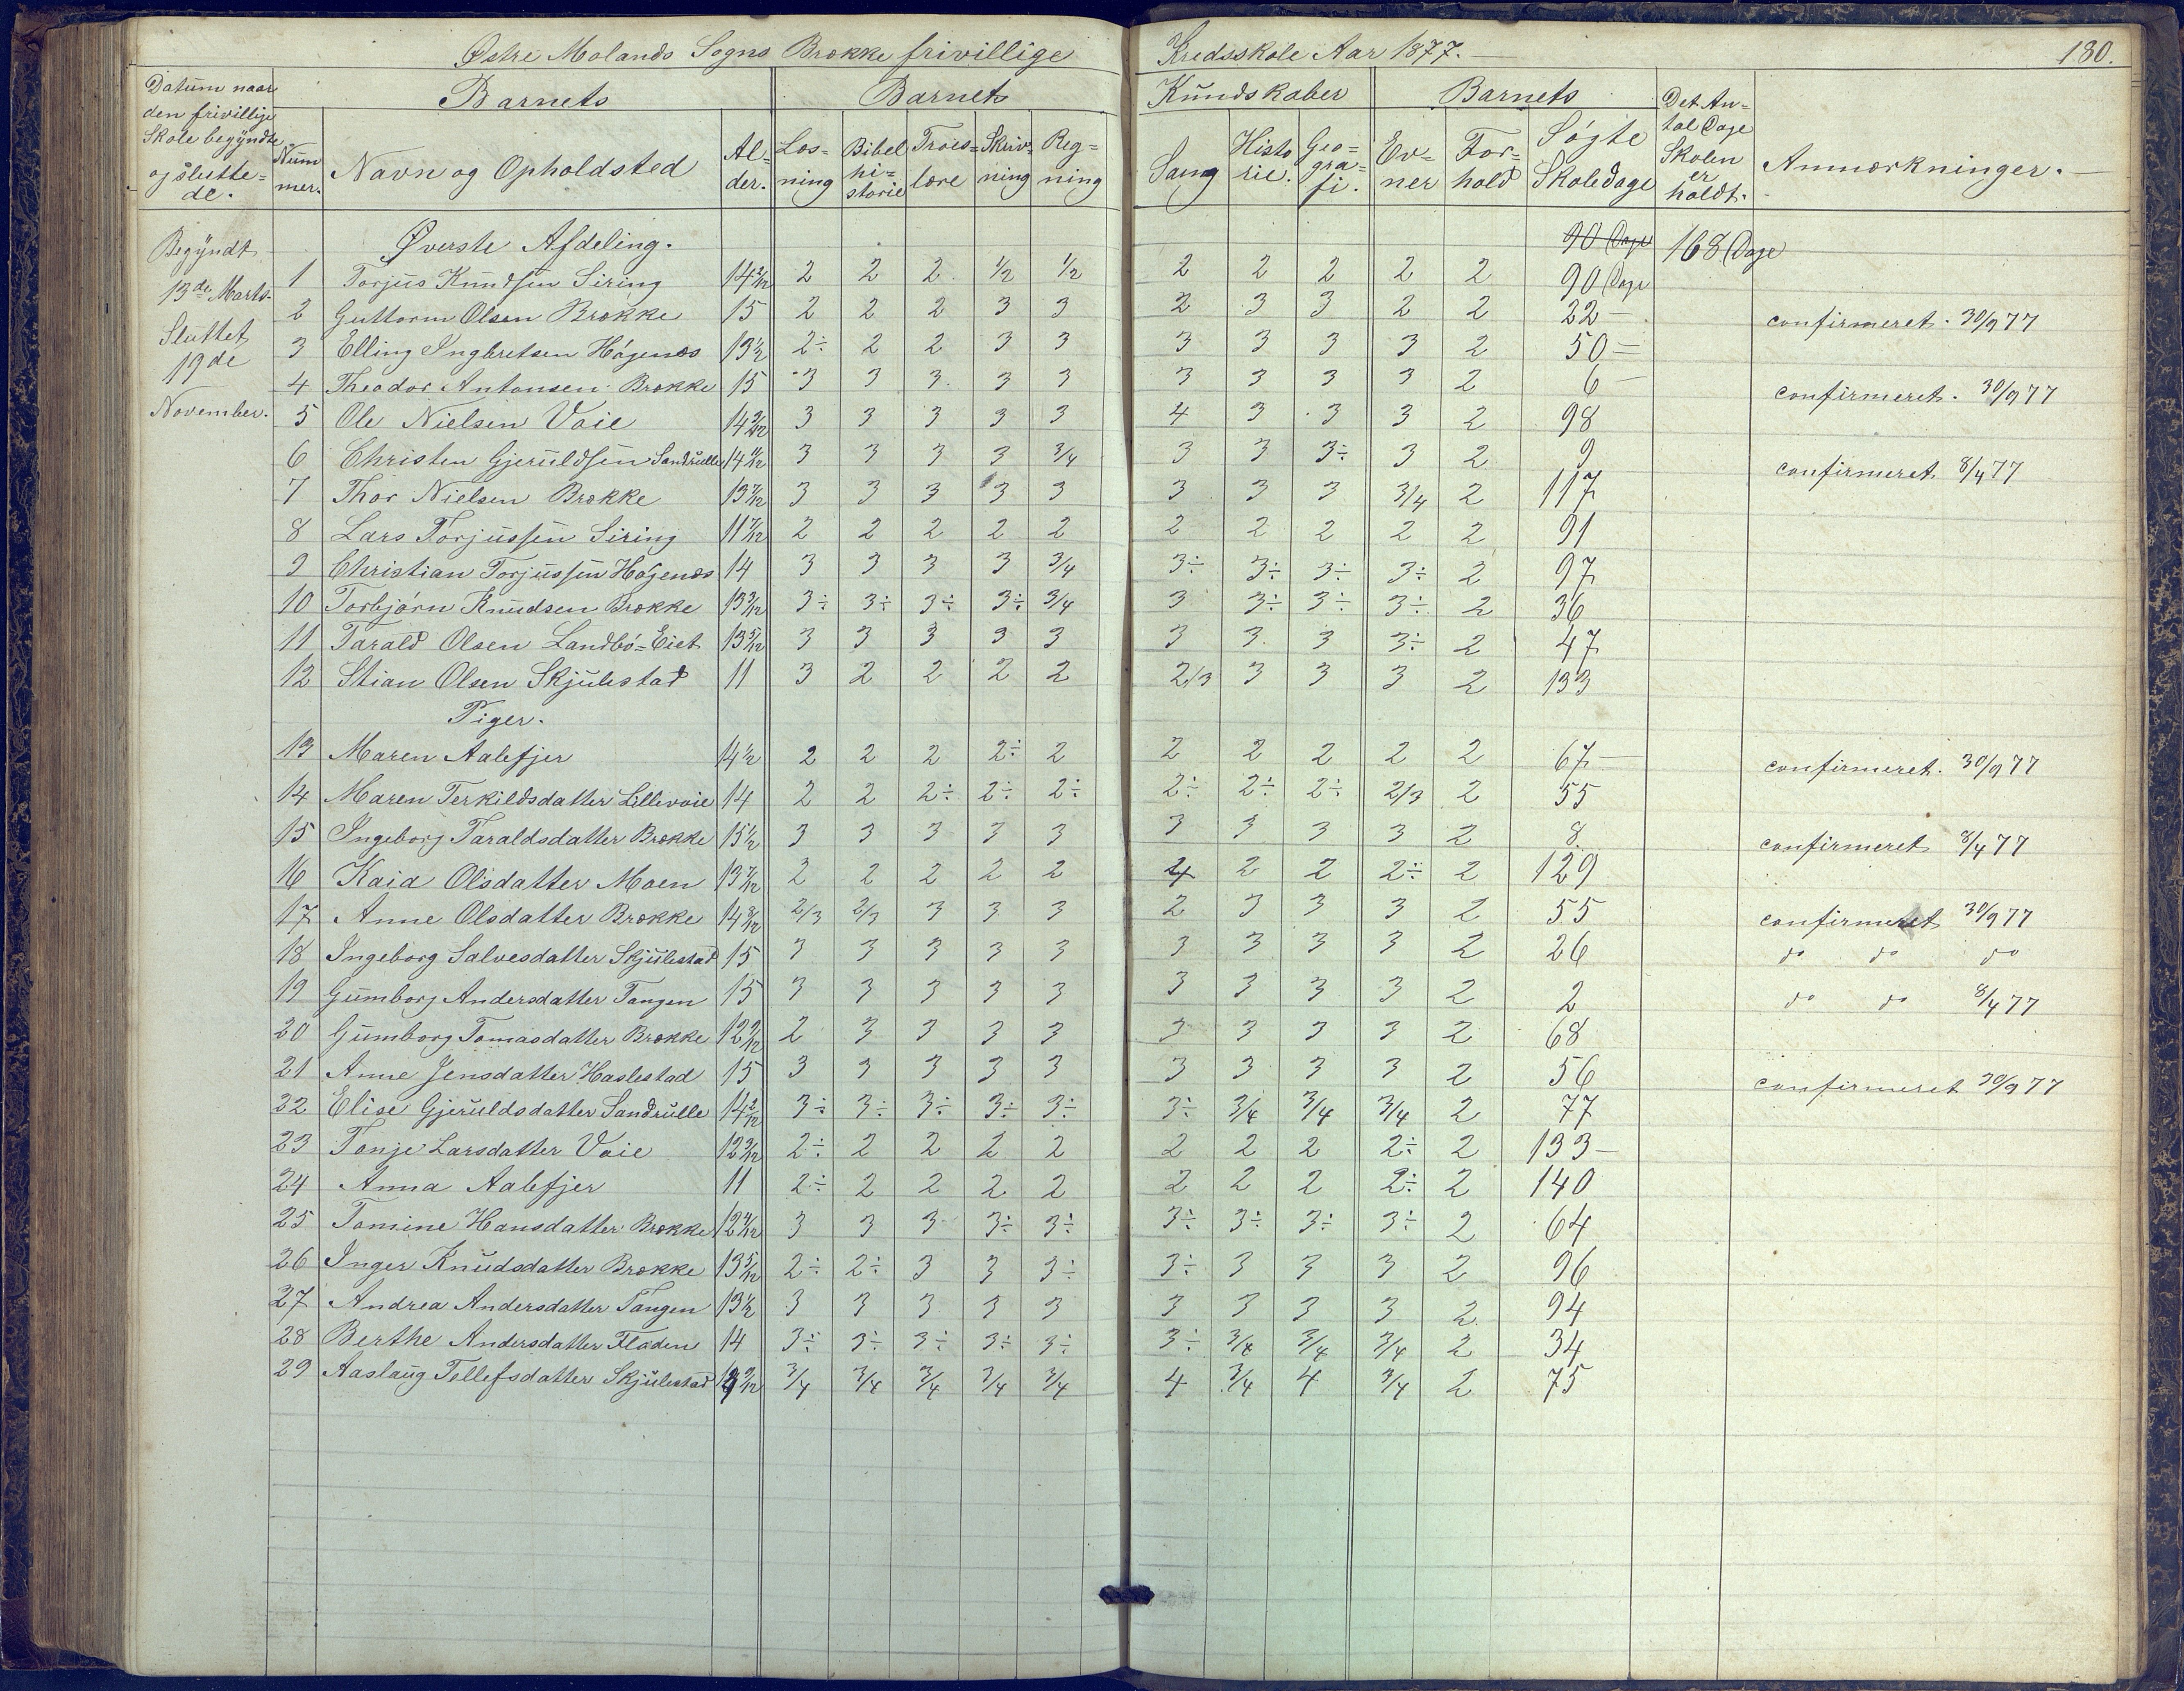 Østre Molands Sogns Brække frivillige Kredsskole Aar 1877. — 180.
Datum naar den frivillige Skole begyndte og sluttede. Nummer. Barnets Navn og Opholdsted Alder. Barnets Kundskaber Læsning Bibelhistorie Troeslære Skrivning Regning Sang Historie. Geografi. Barnets Evner Forhold Søgte Skoledage Det Antal Dage Skolen er holdt. Anmærkninger. —
Begyndt 13de Marts. Sluttet 19de November.
Øverste Afdeling. 90 Dage 168 Dage
1 Torjus Knudsen Siring 14 2/12 2 2 2 1/2 1/2 2 2 2 2 2 90 Dage
2 Guttorm Olsen Brække 15 2 2 2 3 3 2 3 3 2 2 22 — confirmeret. 30/9 77
3 Elling Ingbretsen Høgenæs 13 1/2 2÷ 2 2 3 3 3 3 3 3 2 50 —
4 Theodor Antonsen Brække 15 3 3 3 3 3 3 3 3 3 2 6 — confirmeret. 30/9 77
5 Ole Nielsen Vaie 14 3 3 3 3 3 4 3 3 3 2 98
6 Christen Gjeruldsen Sandrulle 14 3 3 3 3 3/4 3 3 3÷ 3 2 9 confirmeret 8/4 77
7 Thor Nielsen Brække 13 7/12 3 3 3 3 3 3 3 3 3/4 2 117
8 Lars Torjussen Siring 11 7/12 2 2 2 2 2 2 2 2 2 2 91
9 Christian Torjussen Høgenæs 14 3 3 3 3 3/4 3÷ 3÷ 3÷ 3÷ 2 97
10 Torbjørn Knudsen Brække 13 3/12 3÷ 3÷ 3÷ 3÷ 3/4 3 3÷ 3÷ 3÷ 2 36
11 Tarald Olsen Landbø=Eiet 13 5/12 3 3 3 3 3 3 3 3 3÷ 2 47
12 Stian Olsen Skjulestad 11 3 2 2 2 2 2/3 3 3 3 2 133
Piger.
13 Maren Aalefjer 14 1/2 2 2 2 2÷ 2 2 2 2 2 2 67 — confirmeret. 30/9 77
14 Maren Terkildsdatter Lillevaie 14 2 2 2÷ 2÷ 2÷ 2÷ 2÷ 2÷ 2/3 2 55
15 Ingeborg Taraldsdatter Brække 15 1/2 3 3 3 3 3 3 3 3 3 2 8 confirmeret 8/4 77
16 Kaia Olsdatter Moen 13 7/12 2 2 2 2 2 4 2 2 2÷ 2 129
17 Anne Olsdatter Brække 14 8/12 2/3 2/3 3 3 3 2 3 3 3 2 55 confirmeret 30/9 77
18 Ingeborg Salvesdatter Skjulestad 15 3 3 3 3 3 3 3 3 3 2 26 do do do
19 Gumborg Andersdatter Tangen 15 3 3 3 3 3 3 3 3 3 2 2 do do 8/4 77
20 Gumborg Tomasdatter Brække 12 9/12 2 3 3 3 3 3 3 3 3 2 68
21 Anne Jensdatter Haslestad 15 3 3 3 3 3 3 3 3 3 2 56 confirmeret 30/9 77
22 Elise Gjeruldsdatter Sandrulle 14 2/12 3÷ 3÷ 3÷ 3÷ 3÷ 3÷ 3/4 3/4 3/4 2 77
23 Tonje Larsdatter Vaie 12 3/12 2÷ 2 2 2 2 2 2 2 2÷ 2 133 —
24 Anna Aalefjer 11 2÷ 2 2 2 2 2 2 2 2÷ 2 140
25 Tomine Hansdatter Brække 12 4/12 3 3 3 3÷ 3÷ 3÷ 3÷ 3÷ 3÷ 2 64
26 Inger Knudsdatter Brække 13 5/12 2÷ 2÷ 3 3 3÷ 3÷ 3 3 3 2 96
27 Andrea Andersdatter Tangen 13 1/2 3 3 3 3 3 3 3 3 3 2 94
28 Berthe Andersdatter Fladen 14 3÷ 3÷ 3÷ 3÷ 3÷ 3÷ 3/4 3/4 3/4 2 34
29 Aaslaug Tellefsdatter Skjulestad 3/4 3/4 3/4 3/4 3/4 4 3/4 4 3/4 2 75